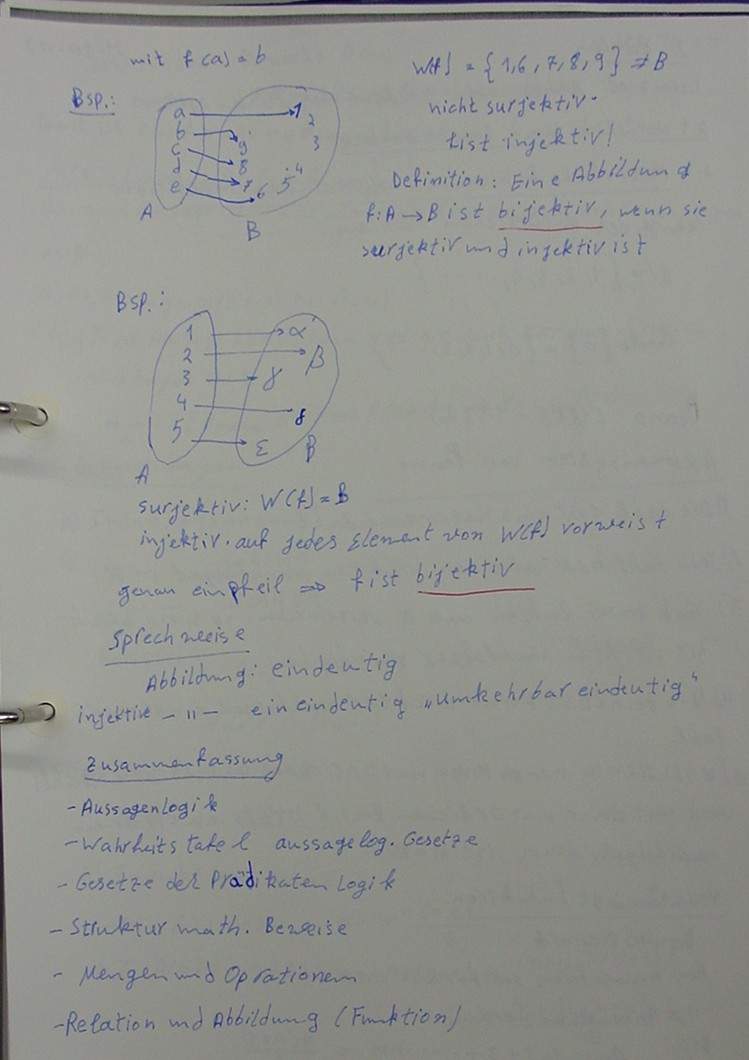 mit f(a) = b
W(f) = {1,6,7,8,9} ≠ B
nicht surjektiv.
f ist injektiv!
Definition: Eine Abbildung
f: A → B ist bijektiv, wenn sie
surjektiv und injektiv ist
Bsp.:
a
b
c
d
e
A
1
2
3
9
8
7
6
5
4
B
Bsp.:
1
2
3
4
5
A
α
β
γ
δ
ε
B
surjektiv: W(f) = B
injektiv. auf jedes Element von W(f) vorweist
genau ein pfeil ⇒ f ist bijektiv
Sprechweise
Abbildung: eindeutig
injektive — " — ein eindeutig „umkehrbar eindeutig"
Zusammenfassung
- Aussagenlogik
- Wahrheitstafel aussagelog. Gesetze
- Gesetze der Prädikaten Logik
- Struktur math. Beweise
- Mengen und Oprationen
- Relation und Abbildung (Funktion)